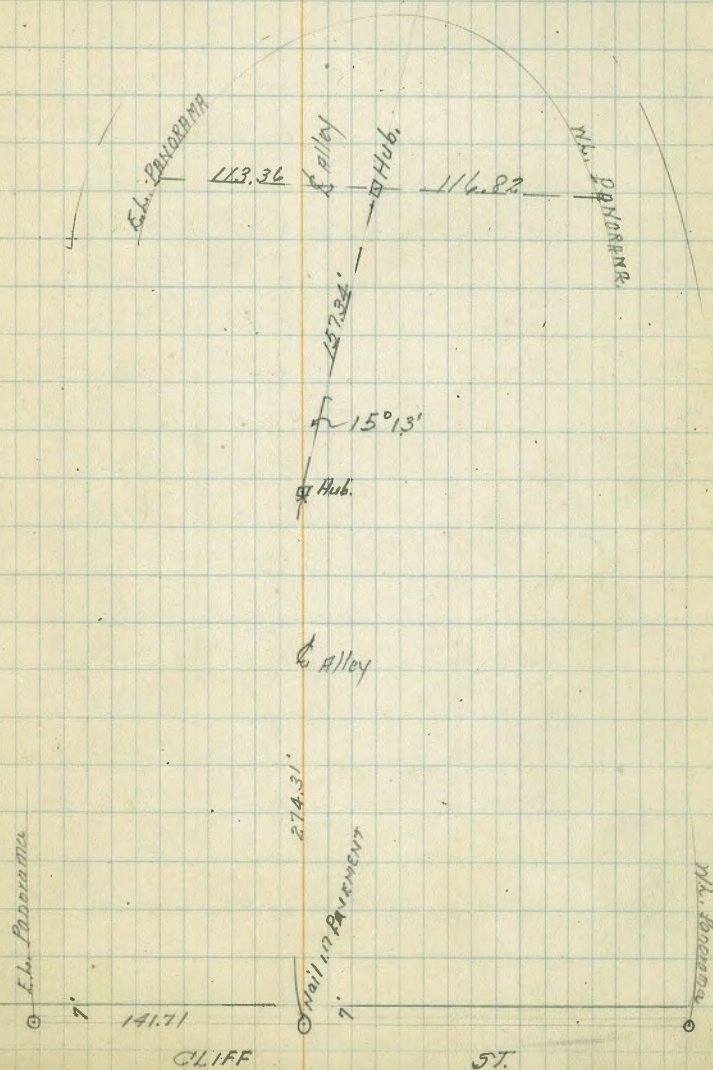 E.L. PANORAMA
113.36
℄ Alley
Hub.
116.82
W.L. PANORAMA.
157.34'
15°13'
Hub.
℄ Alley
274.31'
Nail in PAVEMENT
E.L. Panorama
W.L. Panorama
7'
141.71
7'
CLIFF ST.